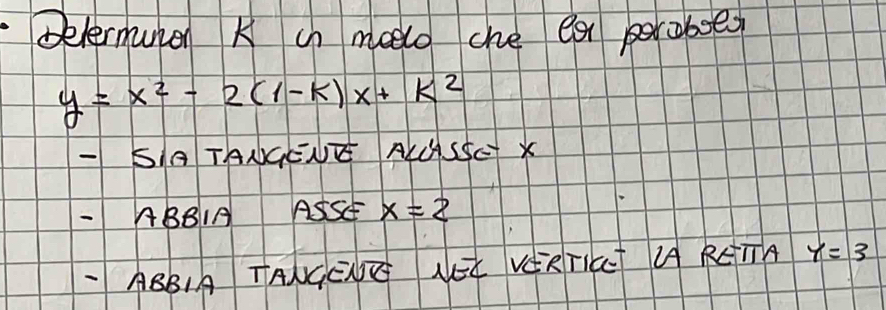 • Determina K in modo che la parabola
y = x² - 2(1-K)x + K²
- SIA TANGENTE ALL'ASSE X
- ABBIA ASSE X = 2
- ABBIA TANGENTE NEL VERTICE LA RETTA Y = 3